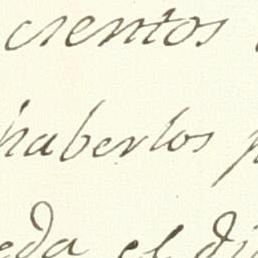 cientos
haberlos p
eda el di